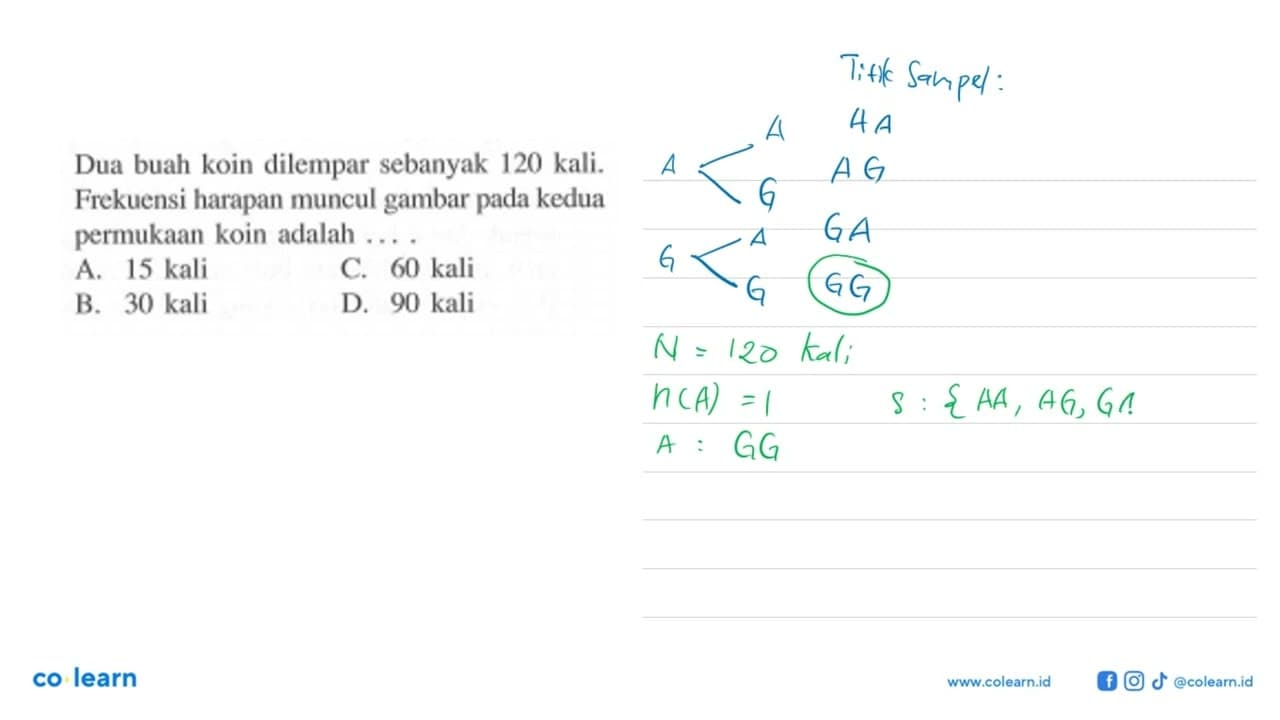 Dua buah koin dilempar sebanyak 120 kali.
Frekuensi harapan muncul gambar pada kedua
permukaan koin adalah ....
A. 15 kali C. 60 kali
B. 30 kali D. 90 kali
Titik Sampel:
A A AA
G AG
G A GA
G GG
N = 120 kali
n(A) = 1 S : { AA, AG, GA
A : GG
co learn
www.colearn.id @colearn.id